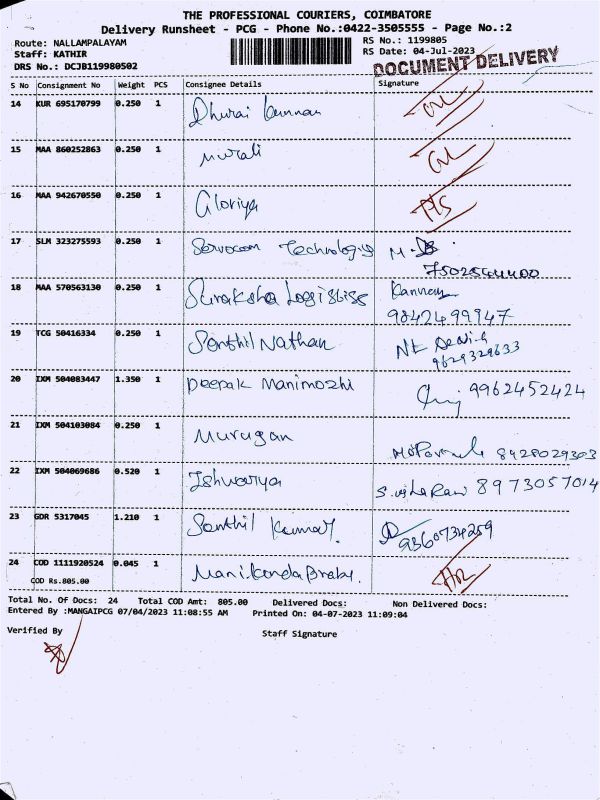 THE PROFESSIONAL COURIERS, COIMBATORE
Delivery Runsheet - PCG - Phone No.:0422-3505555 - Page No.:2
Route: NALLAMPALAYAM RS No.: 1199805
Staff: KATHIR RS Date: 04-Jul-2023
DRS No.: DCJB119980502 DOCUMENT DELIVERY
S No Consignment No Weight PCS Consignee Details Signature
14 KUR 695170799 0.250 1 Dhurai Kannan
15 MAA 860252863 0.250 1 Murali
16 MAA 942670550 0.250 1 Gloriya
17 SLM 323275593 0.250 1 Servocom Technologies
18 MAA 570563130 0.250 1 Suraksha Logistiss Kannan
9842499947
19 TCG 50416334 0.250 1 Senthil Nathan
9629329633
20 IXM 504083447 1.350 1 Deepak Manimozhi 9962452424
21 IXM 504103084 0.250 1 Murugan 8428029303
22 IXM 504069686 0.520 1 Ishwarya 8973057014
23 GDR 5317045 1.210 1 Senthil Kumar. 9360734259
24 COD 1111920524 0.045 1 Manikanda Prabu.
COD Rs.805.00
Total No. Of Docs: 24 Total COD Amt: 805.00 Delivered Docs: Non Delivered Docs:
Entered By :MANGAIPCG 07/04/2023 11:08:55 AM Printed On: 04-07-2023 11:09:04
Verified By Staff Signature